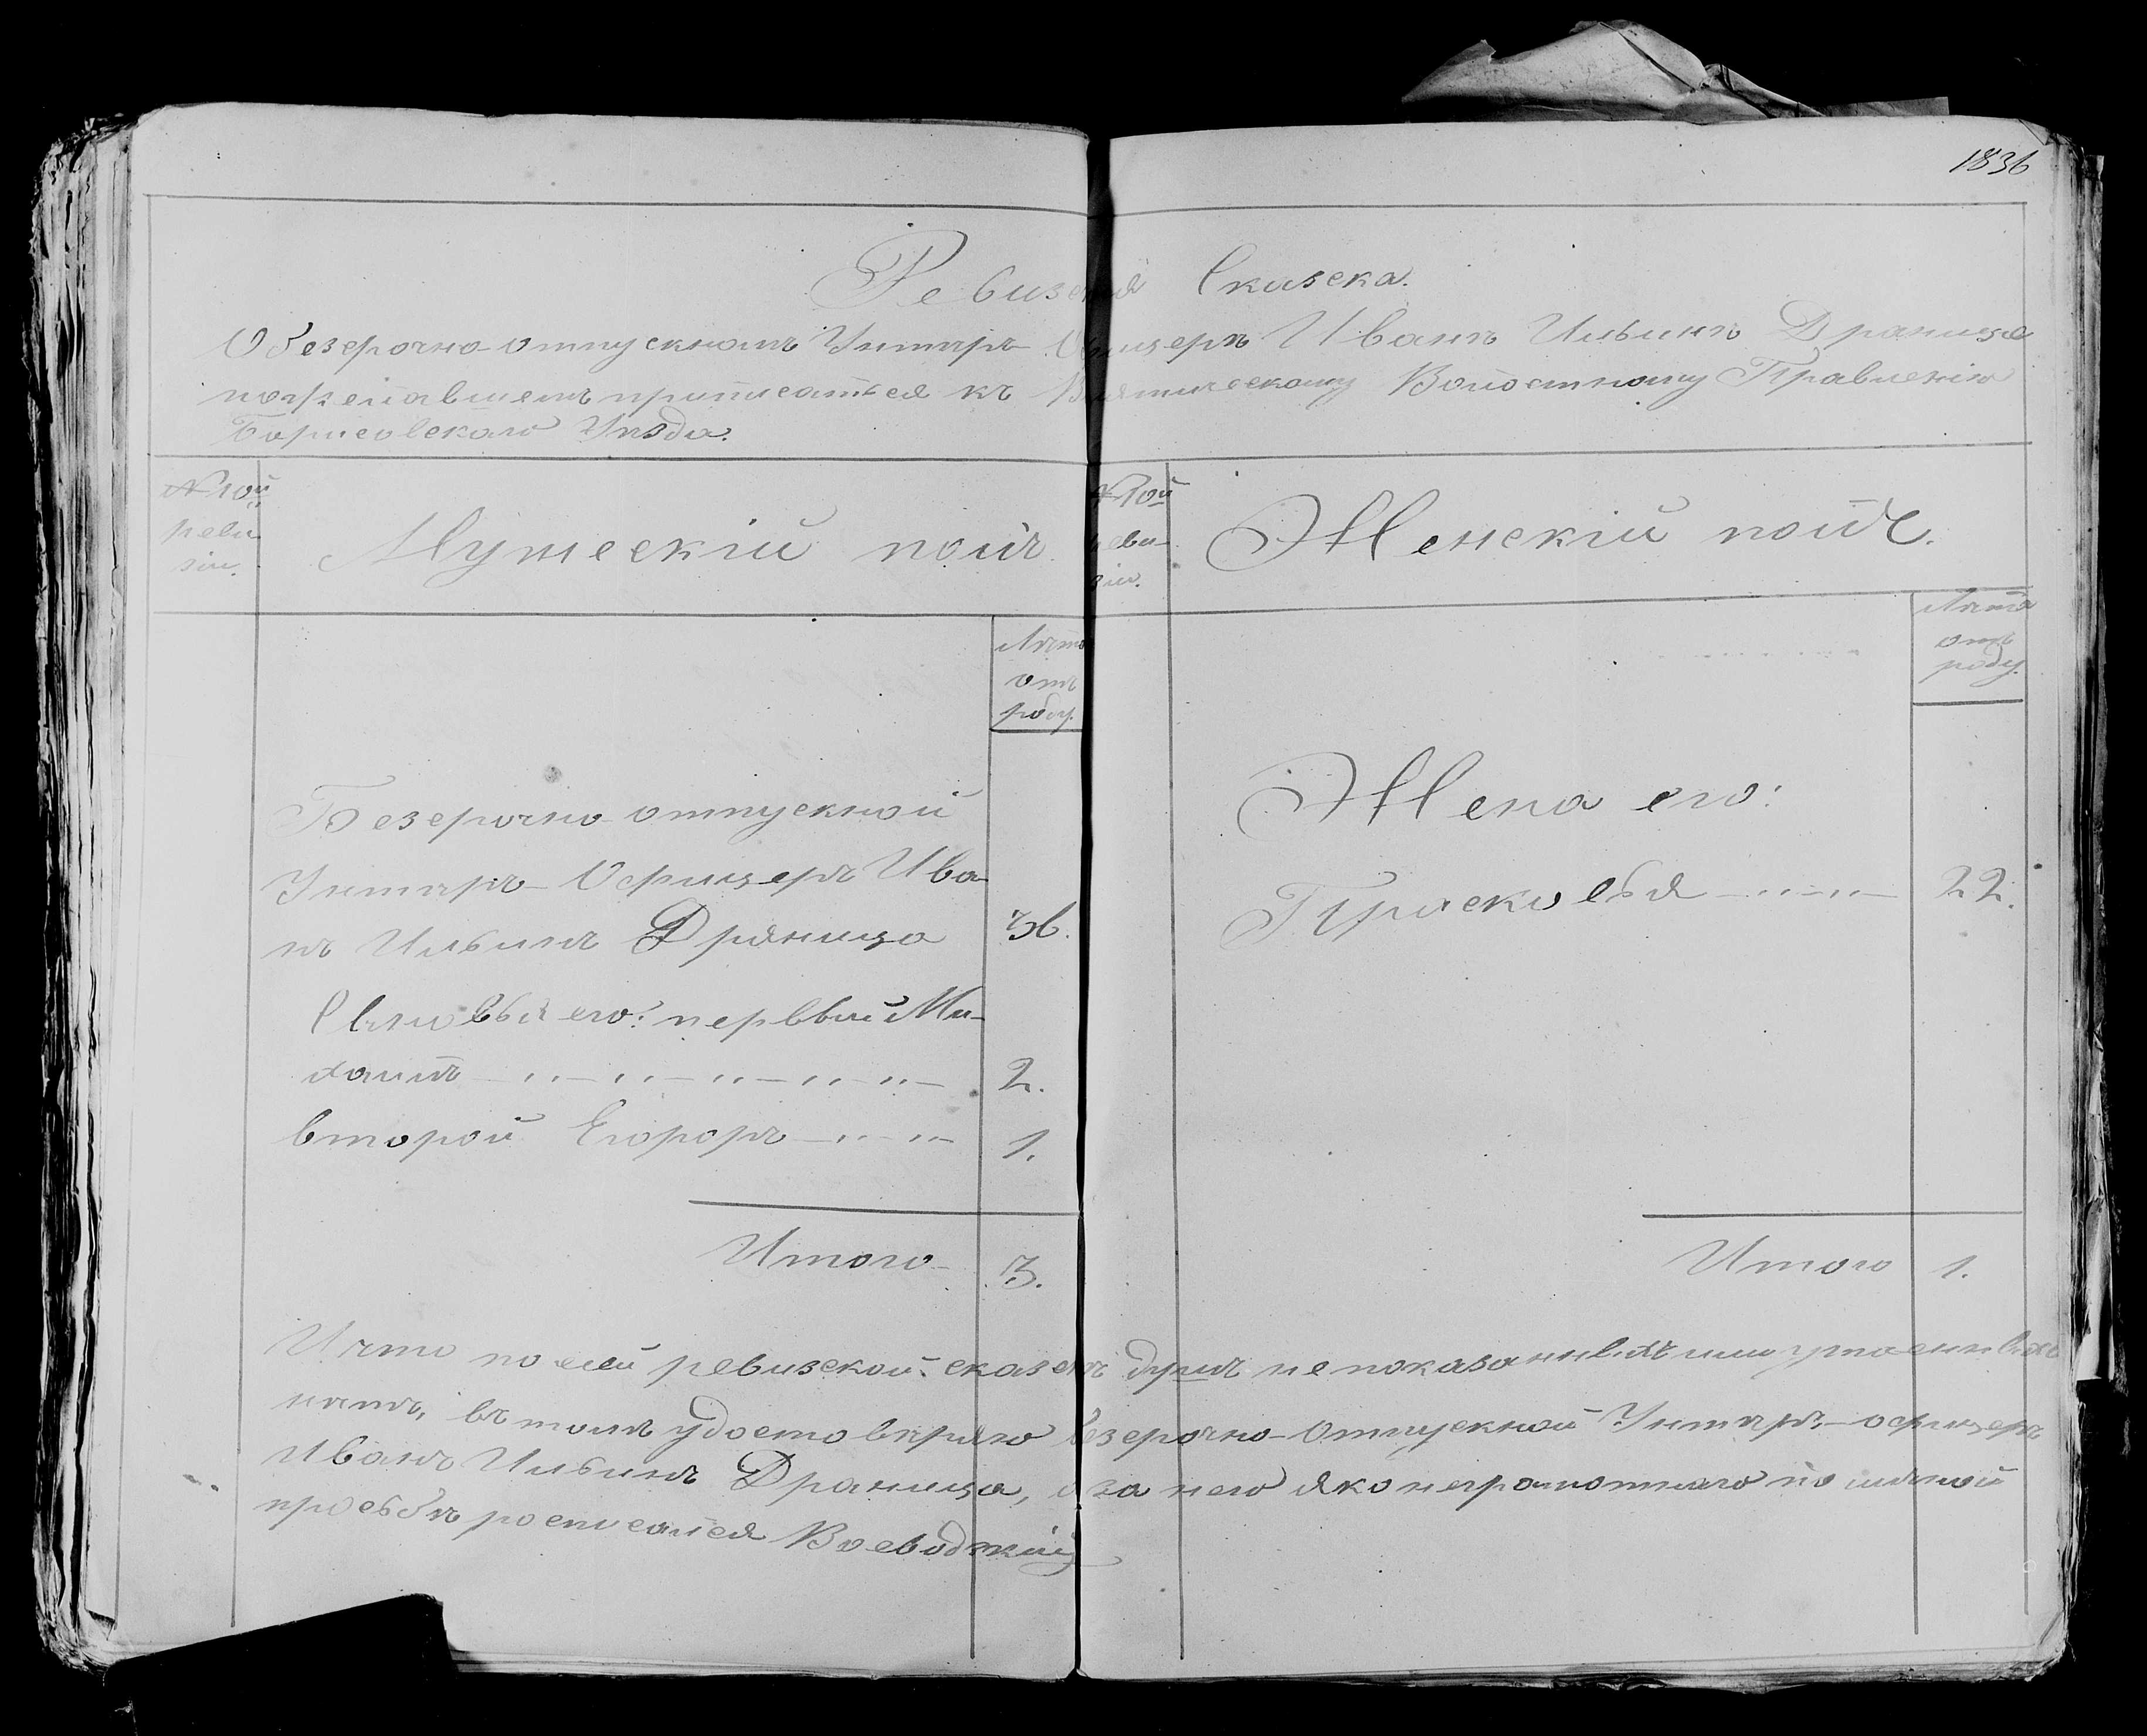 1836
Ревизская Сказска.
О безсрочно-отпускномъ Унтеръ-Офицеръ Иванъ Ильинъ Драница
пожелавшемъ приписаться къ Волостному Правленію
Борисовскаго Уѣзда.
№ 10й ревизіи.
Мужескій полъ.
№ 10й ревизіи.
Женскій полъ.
Лѣта отъ роду.
Лѣта отъ роду.
Безсрочно-отпускной
Унтеръ-Офицеръ Ива-
нъ Ильинъ Драница 36.
Сыновья его: первый Ми-
хаилъ 2.
второй Егороръ 1.
Итого 3.
Жена его:
Прасковья 22.
Итого 1.
И что по сей ревизской сказкѣ душъ не показанныхъ или утаенныхъ
нѣтъ, въ томъ удостовѣряю безсрочно-отпускной Унтеръ-офицеръ
Иванъ Ильинъ Драница, а за него яко неграмотнаго по личной
просьбѣ росписался Воеводжкій